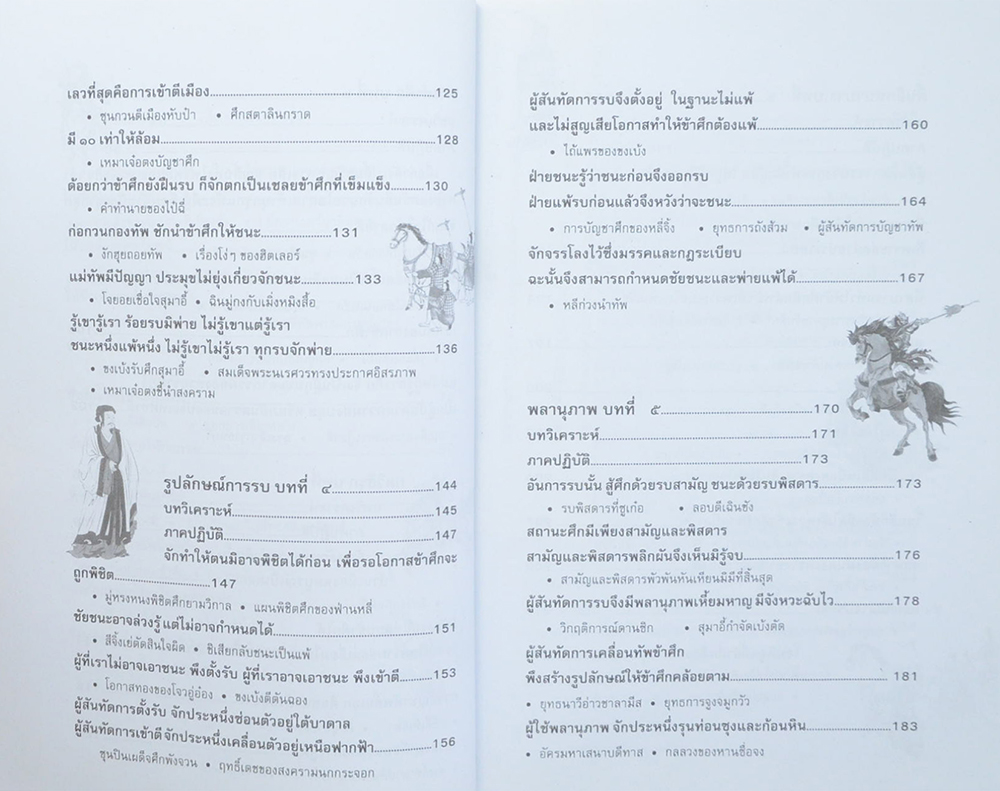 เลวที่สุดคือการเข้าตีเมือง....................125
• ซุนกวนตีเมืองหับป๋า • ศึกสตาลินกราด
มี ๑๐ เท่าให้ล้อม....................128
• เหมาเจ๋อตงบัญชาศึก
ด้อยกว่าข้าศึกยังฝืนรบ ก็จักตกเป็นเชลยข้าศึกที่เข้มแข็ง..........130
• คำทำนายของไป๋ฉี่
ก่อกวนกองทัพ ชักนำข้าศึกให้ชนะ....................131
• งักฮุยถอยทัพ • เรื่องโง่ๆ ของฮิตเลอร์
แม่ทัพมีปัญญา ประมุขไม่ยุ่งเกี่ยวจักชนะ....................133
• โจยอยเชื่อใจสุมาอี้ • ฉินมู่กงกับเมิ่งหมิงสื้อ
รู้เขารู้เรา ร้อยรบมิพ่าย ไม่รู้เขาแต่รู้เรา
ชนะหนึ่งแพ้หนึ่ง ไม่รู้เขาไม่รู้เรา ทุกรบจักพ่าย....................136
• ขงเบ้งรับศึกสุมาอี้ • สมเด็จพระนเรศวรทรงประกาศอิสรภาพ
• เหมาเจ๋อตงชี้นำสงคราม
รูปลักษณ์การรบ บทที่ ๔....................144
บทวิเคราะห์....................145
ภาคปฏิบัติ....................147
จักทำให้ตนมิอาจพิชิตได้ก่อน เพื่อรอโอกาสข้าศึกจะ
ถูกพิชิต....................147
• มู่หรงหนงพิชิตศึกยามวิกาล • แผนพิชิตศึกของฟ่านหลี่
ชัยชนะอาจล่วงรู้ แต่ไม่อาจกำหนดได้....................151
• สีจิ้งเย่ตัดสินใจผิด • ชิเสียกลับชนะเป็นแพ้
ผู้ที่เราไม่อาจเอาชนะ พึงตั้งรับ ผู้ที่เราอาจเอาชนะ พึงเข้าตี..........153
• โอกาสทองของโจวอู่อ๋อง • ขงเบ้งตีตันฉอง
ผู้สันทัดการตั้งรับ จักประหนึ่งซ่อนตัวอยู่ใต้บาดาล
ผู้สันทัดการเข้าตี จักประหนึ่งเคลื่อนตัวอยู่เหนือฟากฟ้า..........156
ซุนปินเผด็จศึกพังจวน • ฤทธิ์เดชของสงครามนกกระจอก
ผู้สันทัดการรบจึงตั้งอยู่ ในฐานะไม่แพ้
และไม่สูญเสียโอกาสทำให้ข้าศึกต้องแพ้....................160
• ไถ้แพรของขงเบ้ง
ฝ่ายชนะรู้ว่าชนะก่อนจึงออกรบ
ฝ่ายแพ้รบก่อนแล้วจึงหวังว่าจะชนะ....................164
• การบัญชาศึกของหลี่จิ้ง • ยุทธการถังส้วม • ผู้สันทัดการบัญชาทัพ
จักจรรโลงไว้ซึ่งมรรคและกฎระเบียบ
ฉะนั้นจึงสามารถกำหนดชัยชนะและพ่ายแพ้ได้....................167
• หลีก่วงนำทัพ
พลานุภาพ บทที่ ๕....................170
บทวิเคราะห์....................171
ภาคปฏิบัติ....................173
อันการรบนั้น สู้ศึกด้วยรบสามัญ ชนะด้วยรบพิสดาร....................173
• รบพิสดารที่ซูเก๋อ • ลอบตีเฉินซัง
สถานะศึกมีเพียงสามัญและพิสดาร
สามัญและพิสดารพลิกผันจึงเห็นมิรู้จบ....................176
• สามัญและพิสดารพัวพันหันเหียนมิมีที่สิ้นสุด
ผู้สันทัดการรบจึงมีพลานุภาพเหี้ยมหาญ มีจังหวะฉับไว..........178
• วิกฤติการณ์ดานซิก • สุมาอี้กำจัดเบ้งตัด
ผู้สันทัดการเคลื่อนทัพข้าศึก
พึงสร้างรูปลักษณ์ให้ข้าศึกคล้อยตาม....................181
• ยุทธนาวีอ่าวซาลามีส • ยุทธการจูงจมูกวัว
ผู้ใช้พลานุภาพ จักประหนึ่งรุนท่อนซุงและก้อนหิน..........183
• อัครมหาเสนาบดีทาส • กลลวงของหานซื่อจง